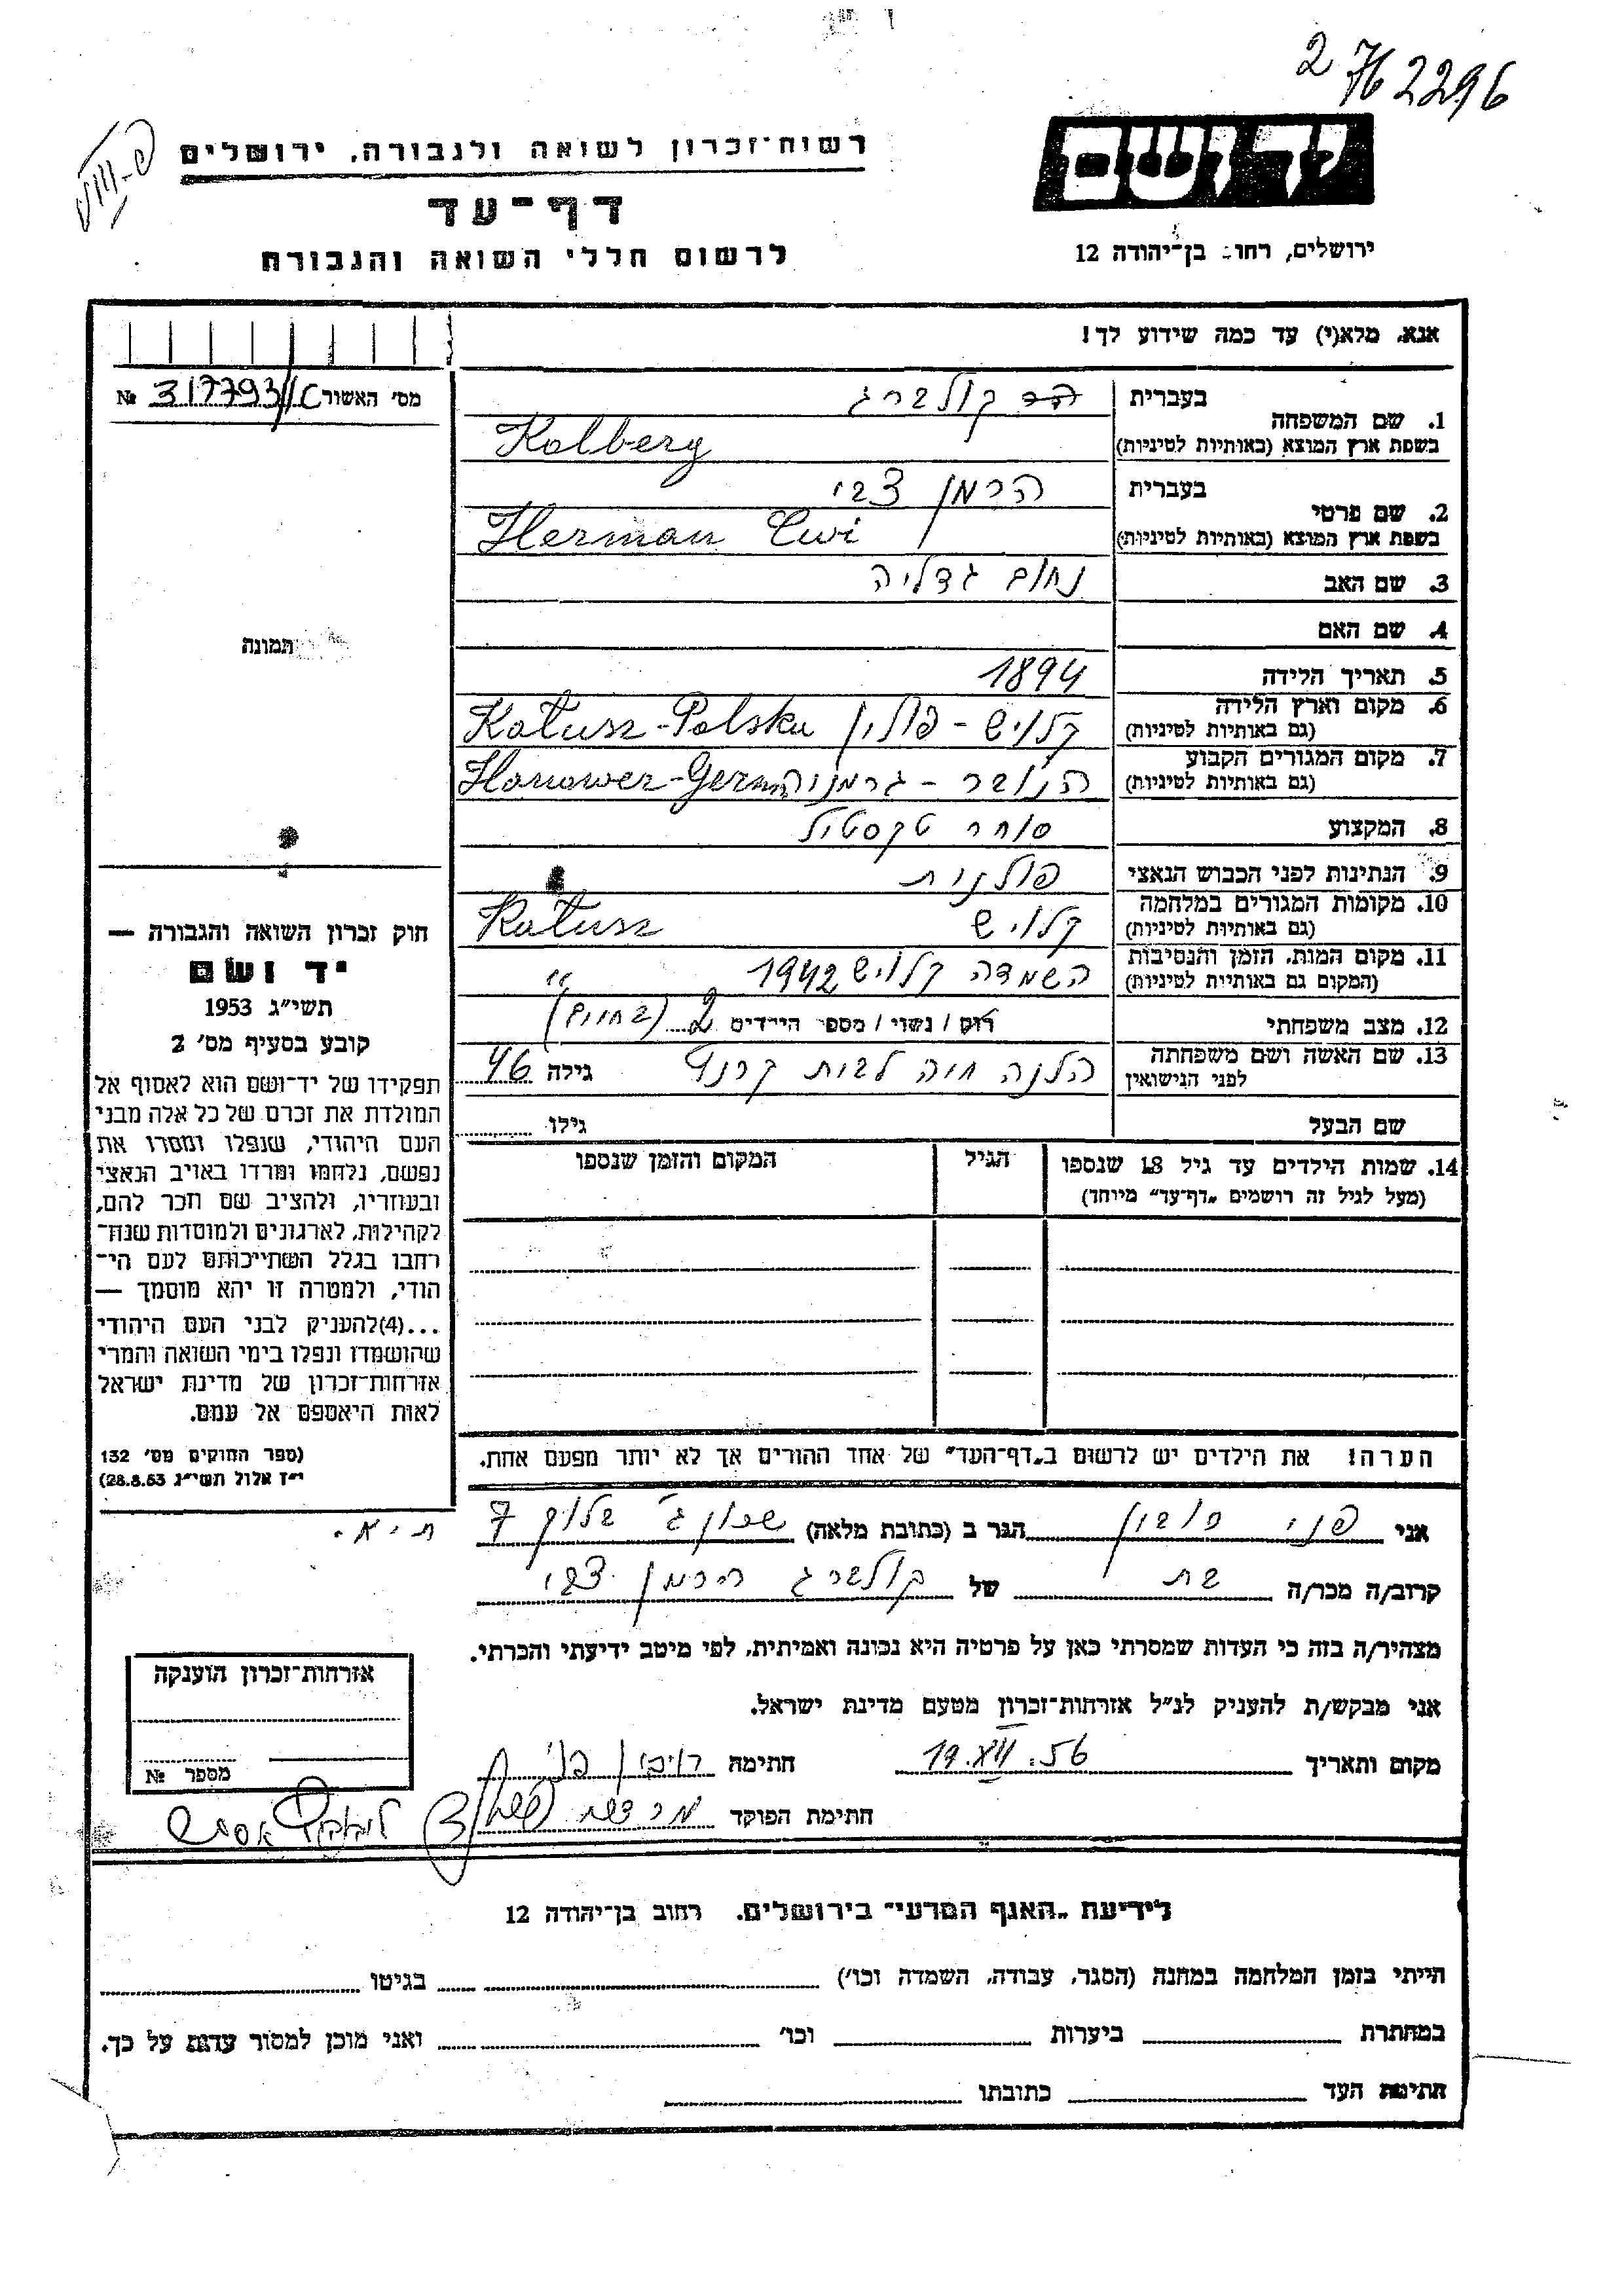 2762296
יד ושם
ירושלים, רחוב בן־יהודה 12
רשות־זכרון לשואה ולגבורה, ירושלים
דף־עד
לרשום חללי השואה והגבורה
אנא, מלא(י) עד כמה שידוע לך!
מס׳ האשור 317793/1C №
תמונה
1. שם המשפחה
בעברית קולברג
בשפת ארץ המוצא (באותיות לטיניות) Kolberg
2. שם פרטי
בעברית הרמן צבי
בשפת ארץ המוצא (באותיות לטיניות) Herman Cwi
3. שם האב נחום גדליה
4. שם האם
5. תאריך הלידה 1894
6. מקום וארץ הלידה
(גם באותיות לטיניות) קלויש - פולין Kałusz-Polska
7. מקום המגורים הקבוע
(גם באותיות לטיניות) הנובר - גרמניה Hanower-Germ
8. המקצוע סוחר טקסטיל
9. הנתינות לפני הכבוש הנאצי פולנית
10. מקומות המגורים במלחמה
(גם באותיות לטיניות) קלויש Kałusz
11. מקום המות, הזמן והנסיבות
(המקום גם באותיות לטיניות) השמדה קלויש 1942 "
12. מצב משפחתי רוק / נשוי / מספר הילדים 2 (בחיים)
13. שם האשה ושם משפחתה
לפני הנישואין הלנה חיה לבית גילה 46
שם הבעל גילו
14. שמות הילדים עד גיל 18 שנספו הגיל המקום והזמן שנספו
(מעל לגיל זה רושמים „דף־עד״ מיוחד)
הערה! את הילדים יש לרשום ב„דף־העד״ של אחד ההורים אך לא יותר מפעם אחת.
חוק זכרון השואה והגבורה —
יד ושם
תשי״ג 1953
קובע בסעיף מס׳ 2
תפקידו של יד־ושם הוא לאסוף אל
המולדת את זכרם של כל אלה מבני
העם היהודי, שנפלו ומסרו את
נפשם, נלחמו ומרדו באויב הנאצי
ובעוזריו, ולהציב שם וזכר להם,
לקהילות, לארגונים ולמוסדות שנח־
רבו בגלל השתייכותם לעם הי־
הודי, ולמטרה זו יהא מוסמך —
...(4)להעניק לבני העם היהודי
שהושמדו ונפלו בימי השואה והמרי
אזרחות־זכרון של מדינת ישראל
לאות היאספם אל עמם.
(ספר החוקים מס׳ 132
י״ז אלול תשי״ג 28.8.53)
אני פני הגר ב (כתובת מלאה) שכון ג׳ 7 ת־א.
קרוב/ה מכר/ה בת של קולברג הרמן צבי
מצהיר/ה בזה כי העדות שמסרתי כאן על פרטיה היא נכונה ואמיתית, לפי מיטב ידיעתי והכרתי.
אני מבקש/ת להעניק לנ״ל אזרחות־זכרון מטעם מדינת ישראל.
מקום ותאריך 19.XII.56 חתימה
חתימת הפוקד
אזרחות־זכרון הוענקה
מספר №
לידיעת „האגף המדעי״ בירושלים. רחוב בן־יהודה 12
הייתי בזמן המלחמה במחנה (הסגר, עבודה, השמדה וכו׳) בגיטו
במחתרת ביערות וכו׳ ואני מוכן למסור עדות על כך.
חתימת העד כתובתו